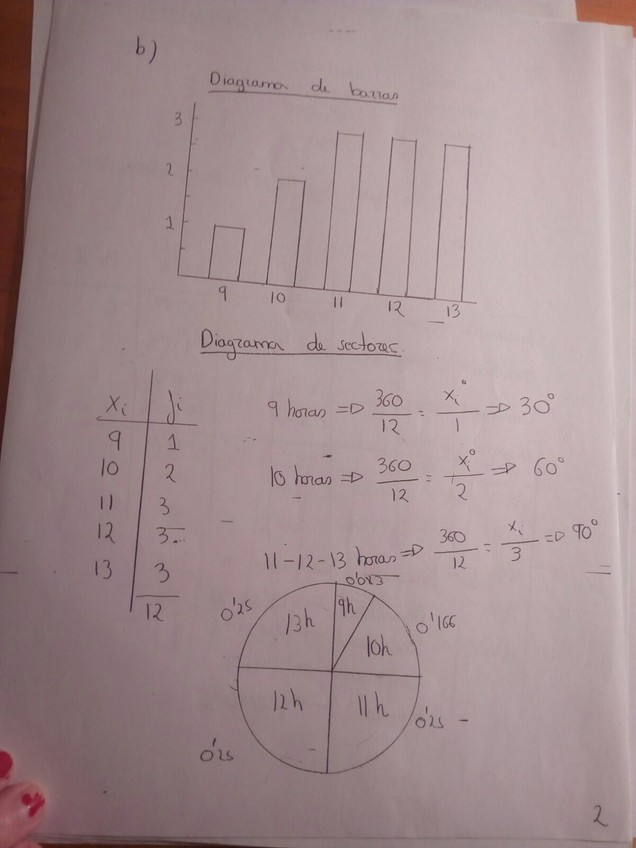 b)
Diagrama de barras
3
2
1
9 10 11 12 13
Diagrama de sectores.
xi fi
9 1
10 2
11 3
12 3
13 3
12
9 horas ⇒ 360/12 = xi°/1 ⇒ 30°
10 horas ⇒ 360/12 = xi°/2 ⇒ 60°
11-12-13 horas ⇒ 360/12 = xi/3 ⇒ 90°
0'083
0'25 13h 9h 0'166
10h
12h 11h
0'25 0'25
2